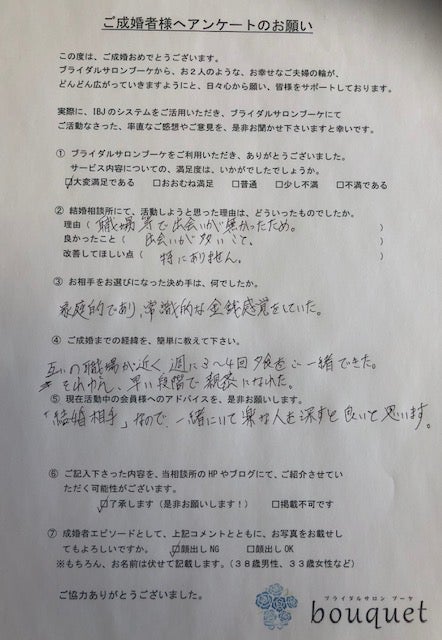 ご成婚者様へアンケートのお願い
この度は、ご成婚おめでとうございます。
ブライダルサロンブーケから、お2人のような、お幸せなご夫婦の輪が、
どんどん広がっていきますようにと、日々心から願い、皆様をサポートしております。
実際に、IBJのシステムをご活用いただき、ブライダルサロンブーケにて
ご活動なさった、率直なご感想やご意見を、是非お聞かせ下さいますと幸いです。
① ブライダルサロンブーケをご利用いただき、ありがとうございました。
サービス内容についての、満足度は、いかがでしたでしょうか。
☑大変満足である □おおむね満足 □普通 □少し不満 □不満である
② 結婚相談所にて、活動しようと思った理由は、どういったものでしたか。
理由（ 職場等で出会いが無かったため。 ）
良かったこと（ 出会いが多いこと、 ）
改善してほしい点（ 特にありません。 ）
③ お相手をお選びになった決め手は、何でしたか。
家庭的であり、常識的な金銭感覚をしていた。
④ ご成婚までの経緯を、簡単に教えて下さい。
互いの職場が近く、週に3〜4回夕食をご一緒できた。
それゆえ、早い段階で親密になれた。
⑤ 現在活動中の会員様へのアドバイスを、是非お願いします。
「結婚相手」なので、一緒にいて楽な人を探すと良いと思います。
⑥ ご記入下さった内容を、当相談所のHPやブログにて、ご紹介させてい
ただく可能性がございます。
☑了承します（是非お願いします！） □掲載不可です
⑦ 成婚者エピソードとして、上記コメントとともに、お写真をお載せし
てもよろしいですか。 ☑顔出しNG □顔出しOK
※もちろん、お名前は伏せて記載します。（38歳男性、33歳女性など）
ご協力ありがとうございました。
ブライダルサロン ブーケ
bouquet